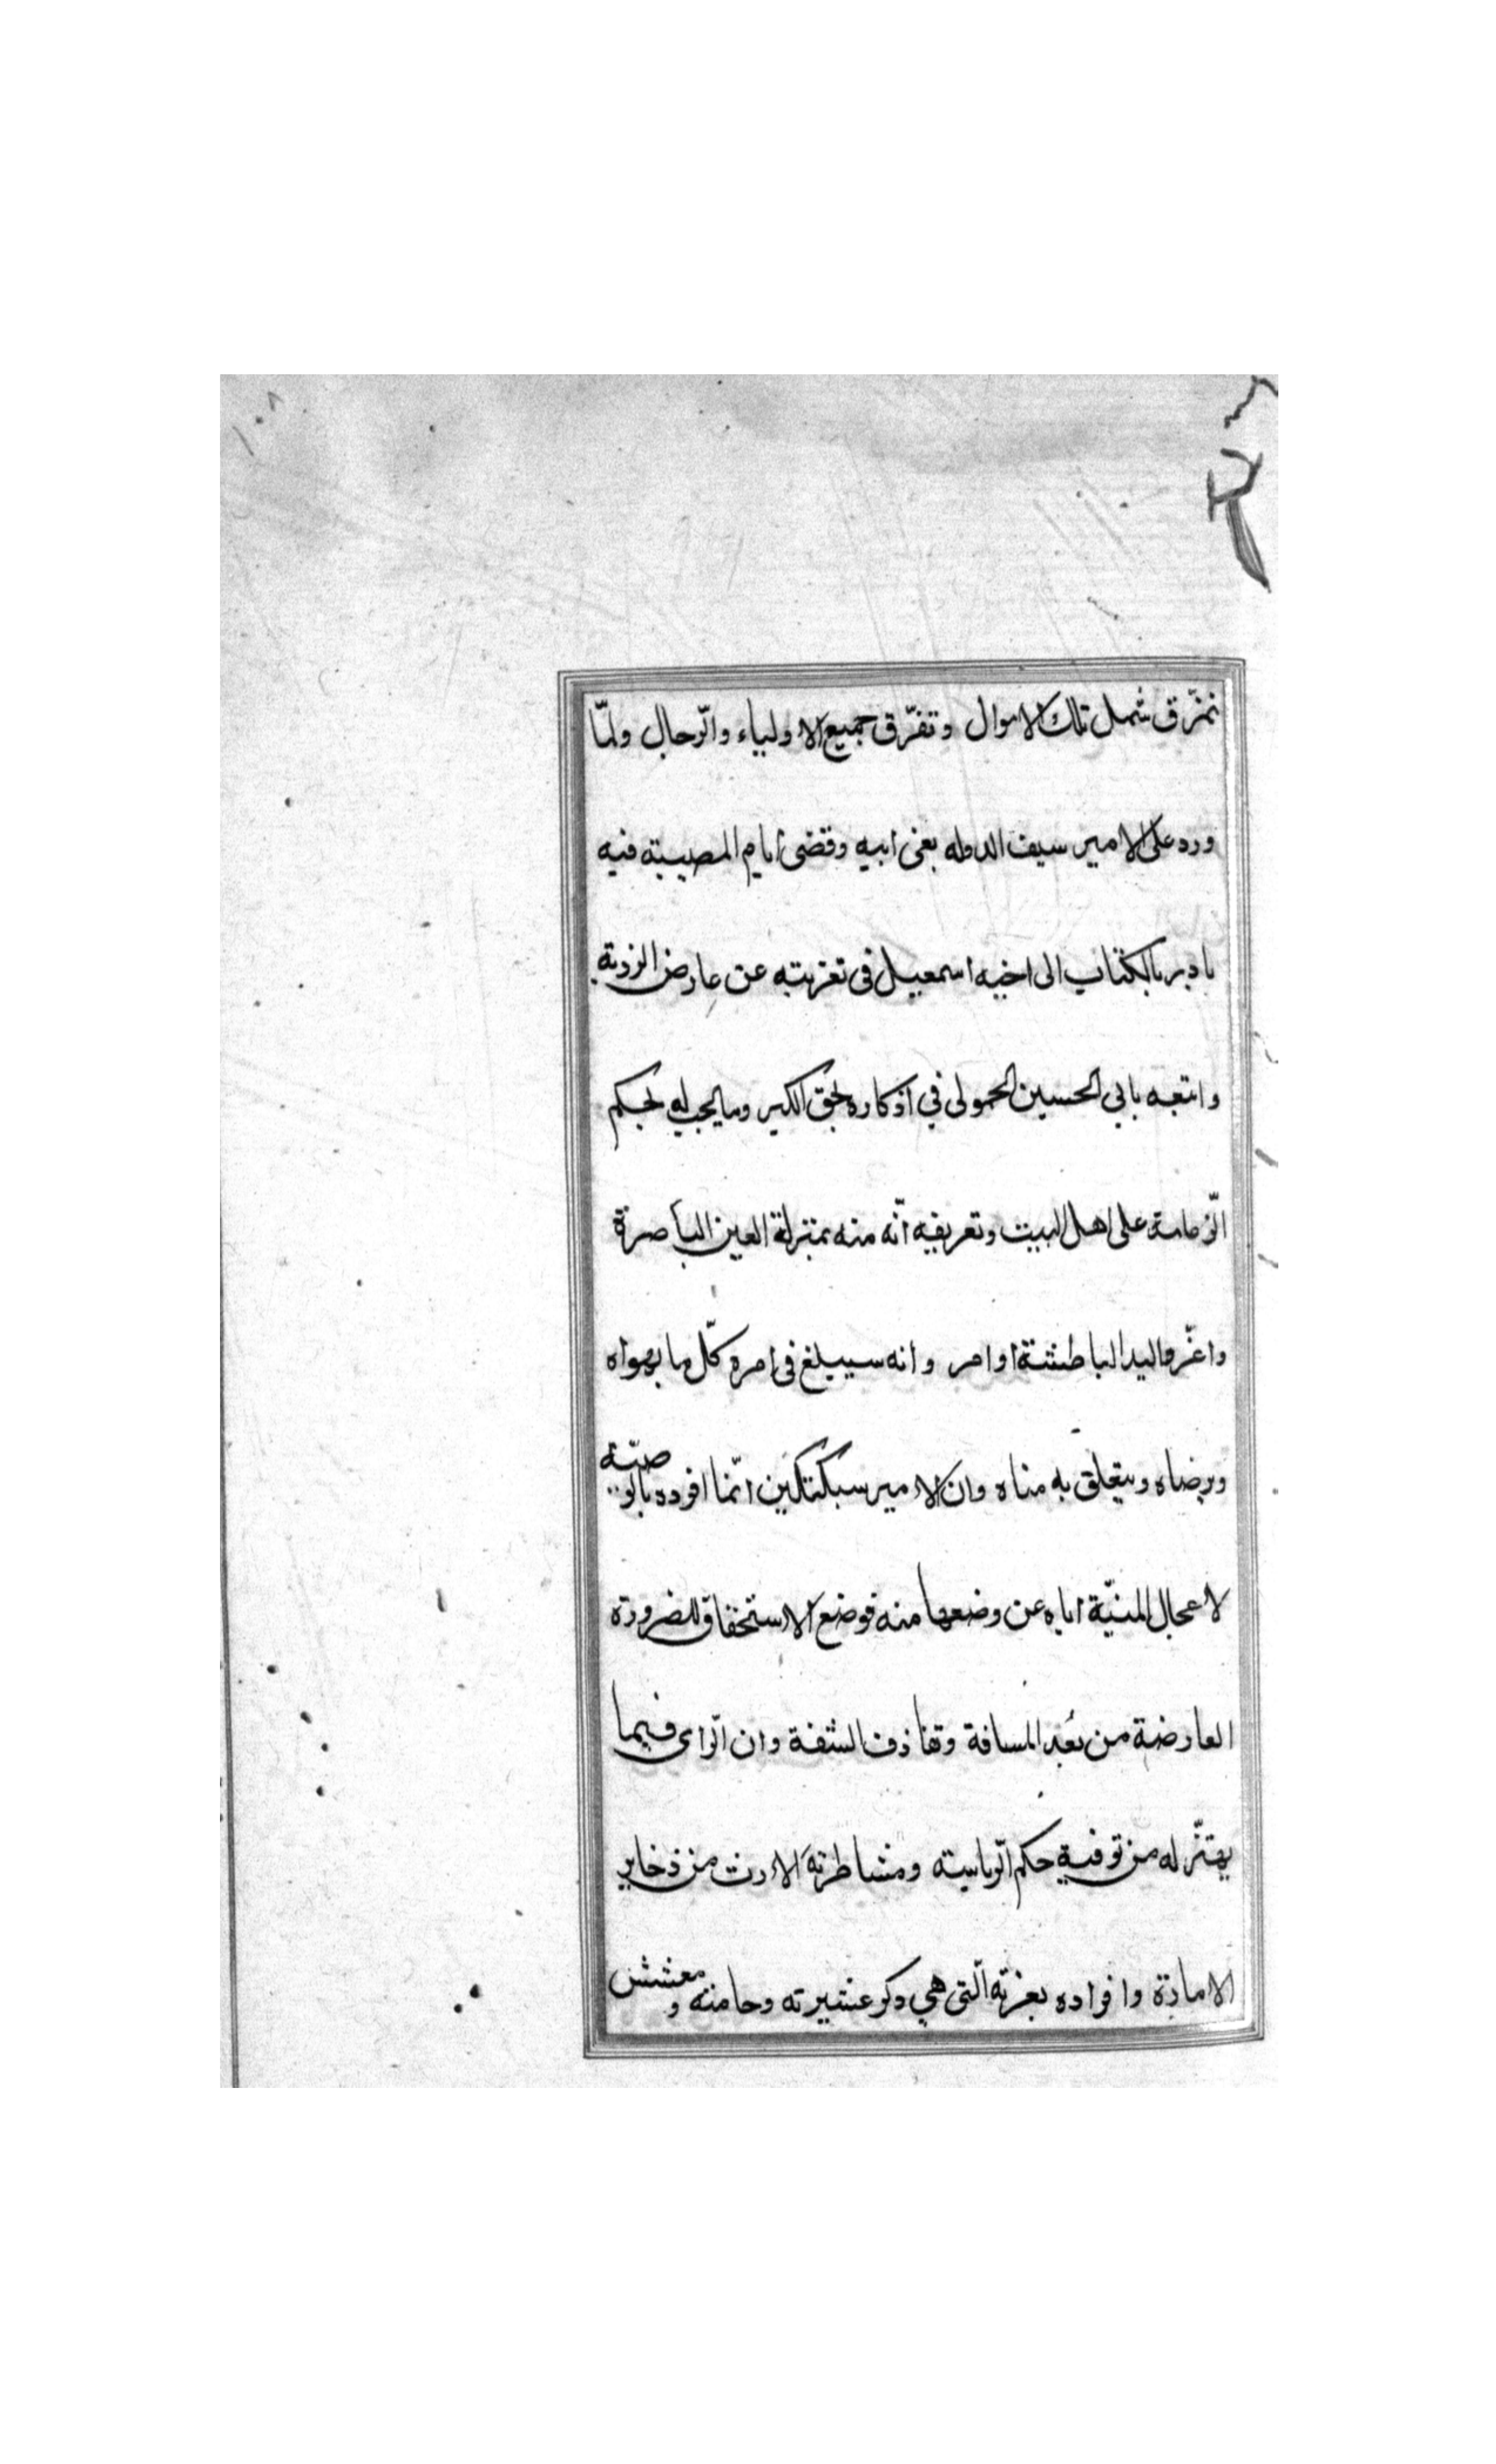 تمزّق شمل تلك الاموال وتفرّق جميع الاولياء والرّجال ولمّا
ورد على الامير سيف الدوله بغى ابيه وقضى ايام المصيبته فيه
بادر بالكتاب الى اخيه اسمعيل فى تعزيته عن عارض الرزية
واتبعه بابي الحسين الحمولى في اذكاره بحق الكبير وما يجب له بحكم
الزعامة على اهل البيت وتعريفه انّه منه بمنزلة العين الباصرة
واعزّ واليد الباطشة اوامر وانه سيبلغ فى امره كلّ ما يهواه
ويرضاه ويتعلق به مناه وان الامير سبكتكين انّما افرده بالوصيّة
لاعجال المنيّة اياه عن وضعها منه فوضع الاستحقاق للضرورة
العارضة من بُعد المسافة وتقاذف الشقة وان الرّاى فيما
يهتزّ له من توفية حكم الرّياسته ومشاطرته الارث من ذخاير
الامارة وافراده بغزنه الّتى هي وكر عشيرته وحامته ومعشش